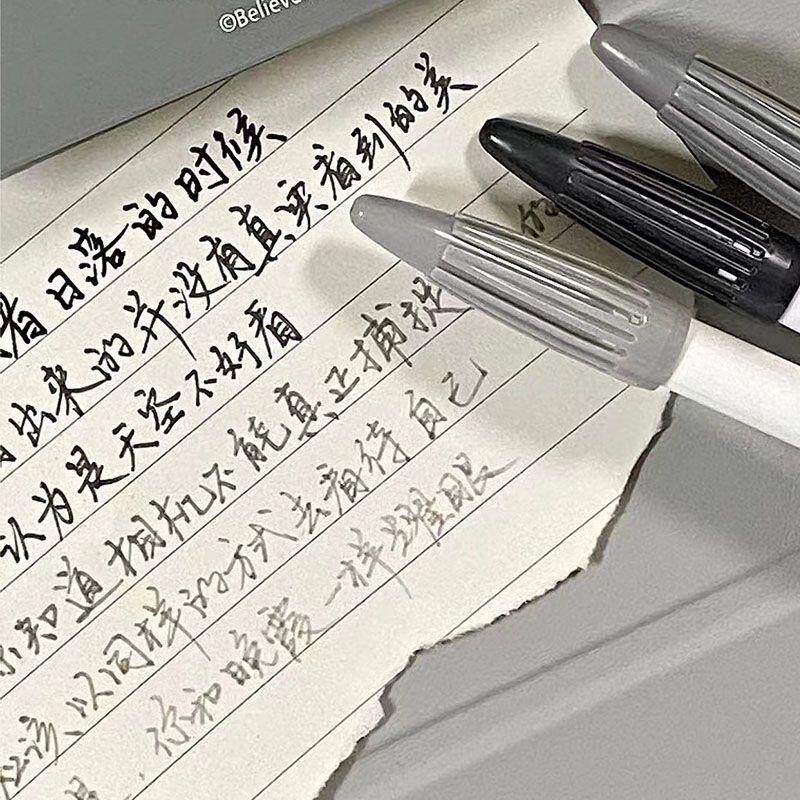 ©Believe
着日落的时候
出来的并没有真实看到的美
认为是天空不好看
你知道相机不能真正捕捉
你
应该以同样的方式去看待自己
是，你和晚霞一样耀眼